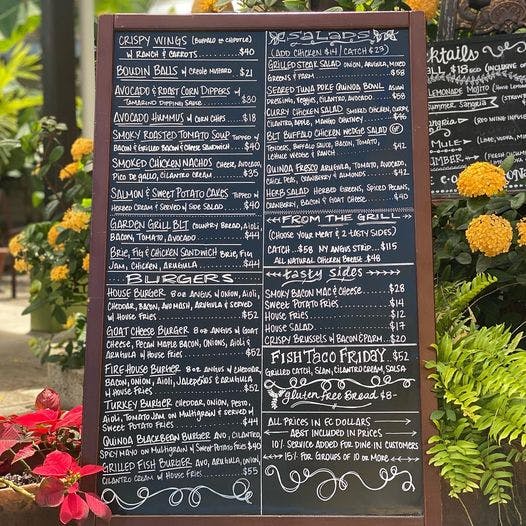 CRISPY WINGS (BUFFALO or CHIPOTLE)
W RANCH & CARROTS .......$40
BOUDIN BALLS W CREOLE MUSTARD .. $21
AVOCADO & ROAST CORN DIPPERS W
TAMARIND DIPPING SAUCE ......... $30
AVOCADO HUMMUS W CORN CHIPS .. $18
SMOKY ROASTED TOMATO SOUP TOPPED W
BACON & GRILLED BACON & CHEESE SANDWICH .. $40
SMOKED CHICKEN NACHOS CHEESE, AVOCADO,
PICO DE GALLO, CILANTRO CREAM ....... $35
SALMON & SWEET POTATO CAKES TOPPED W
HERBED CREAM & SERVED W SIDE SALAD .. $40
GARDEN GRILL BLT COUNTRY BREAD, AIOLI,
BACON, TOMATO, AVOCADO ......... $44
BRIE, FIG & CHICKEN SANDWICH BRIE, FIG
JAM, CHICKEN, ARUGULA ........ $44
BURGERS
HOUSE BURGER 8 OZ ANGUS W ONION, AIOLI,
CHEDDAR, BACON, AVO MASH, ARUGULA & SERVED
W HOUSE FRIES ............. $52
GOAT CHEESE BURGER 8 OZ ANGUS W GOAT
CHEESE, PECAN MAPLE BACON, ONIONS, AIOLI &
ARUGULA W HOUSE FRIES ....... $52
FIRE HOUSE BURGER 8 OZ ANGUS W CHEDDAR,
BACON, ONION, AIOLI, JALEPEÑOS & ARUGULA
W HOUSE FRIES ............. $52
TURKEY BURGER CHEDDAR, ONION, PESTO,
AIOLI, TOMATO JAM ON MULTIGRAIN & SERVED W
SWEET POTATO FRIES ............. $44
QUINOA BLACKBEAN BURGER AVO, CILANTRO,
SPICY MAYO ON MULTIGRAIN W SWEET POTATO FRIES $40
GRILLED FISH BURGER AVO, ARUGULA, ONION,
CILANTRO CREAM W HOUSE FRIES ...... $55
SALADS
(ADD CHICKEN $14 / CATCH $23)
GRILLED STEAK SALAD ONION, ARUGULA, MIXED
GREENS & PARM ............. $58
SEARED TUNA POKE QUINOA BOWL ASIAN
DRESSING, VEGGIES, CILANTRO, AVOCADO ..... $58
CURRY CHICKEN SALAD SMOKED CHICKEN, CURRY,
CILANTRO, APPLE, MANGO CHUTNEY .... $46
BLT BUFFALO CHICKEN WEDGE SALAD GF
TENDERS, BUFFALO SAUCE, BACON, TOMATO,
LETTUCE WEDGE & RANCH ........ $42
QUINOA FRESCO ARUGULA, TOMATO, AVOCADO,
CHICK PEAS, CRANBERRY & ALMONDS ..... $42
HERB SALAD HERBED GREENS, SPICED PECANS,
CRANBERRY, BACON & GOAT CHEESE .... $40
FROM THE GRILL
(CHOOSE YOUR MEAT & 2 TASTY SIDES)
CATCH ...$58 NY ANGUS STRIP ...$115
ALL NATURAL CHICKEN BREAST $48
tasty sides
SMOKY BACON MAC & CHEESE ....... $28
SWEET POTATO FRIES ............. $14
HOUSE FRIES ................. $12
HOUSE SALAD ................. $17
CRISPY BRUSSELS W BACON & PARM .... $20
FISH TACO FRIDAY .. $52
GRILLED CATCH, SLAW, CILANTRO CREAM, SALSA
gluten free BREAD $8-
ALL PRICES IN EC DOLLARS
ABST INCLUDED IN PRICES
10% SERVICE ADDED FOR DINE IN CUSTOMERS
15% FOR GROUPS OF 10 OR MORE
cktails
LEMONADE MOJITO
SUMMER SANGRIA
MULE